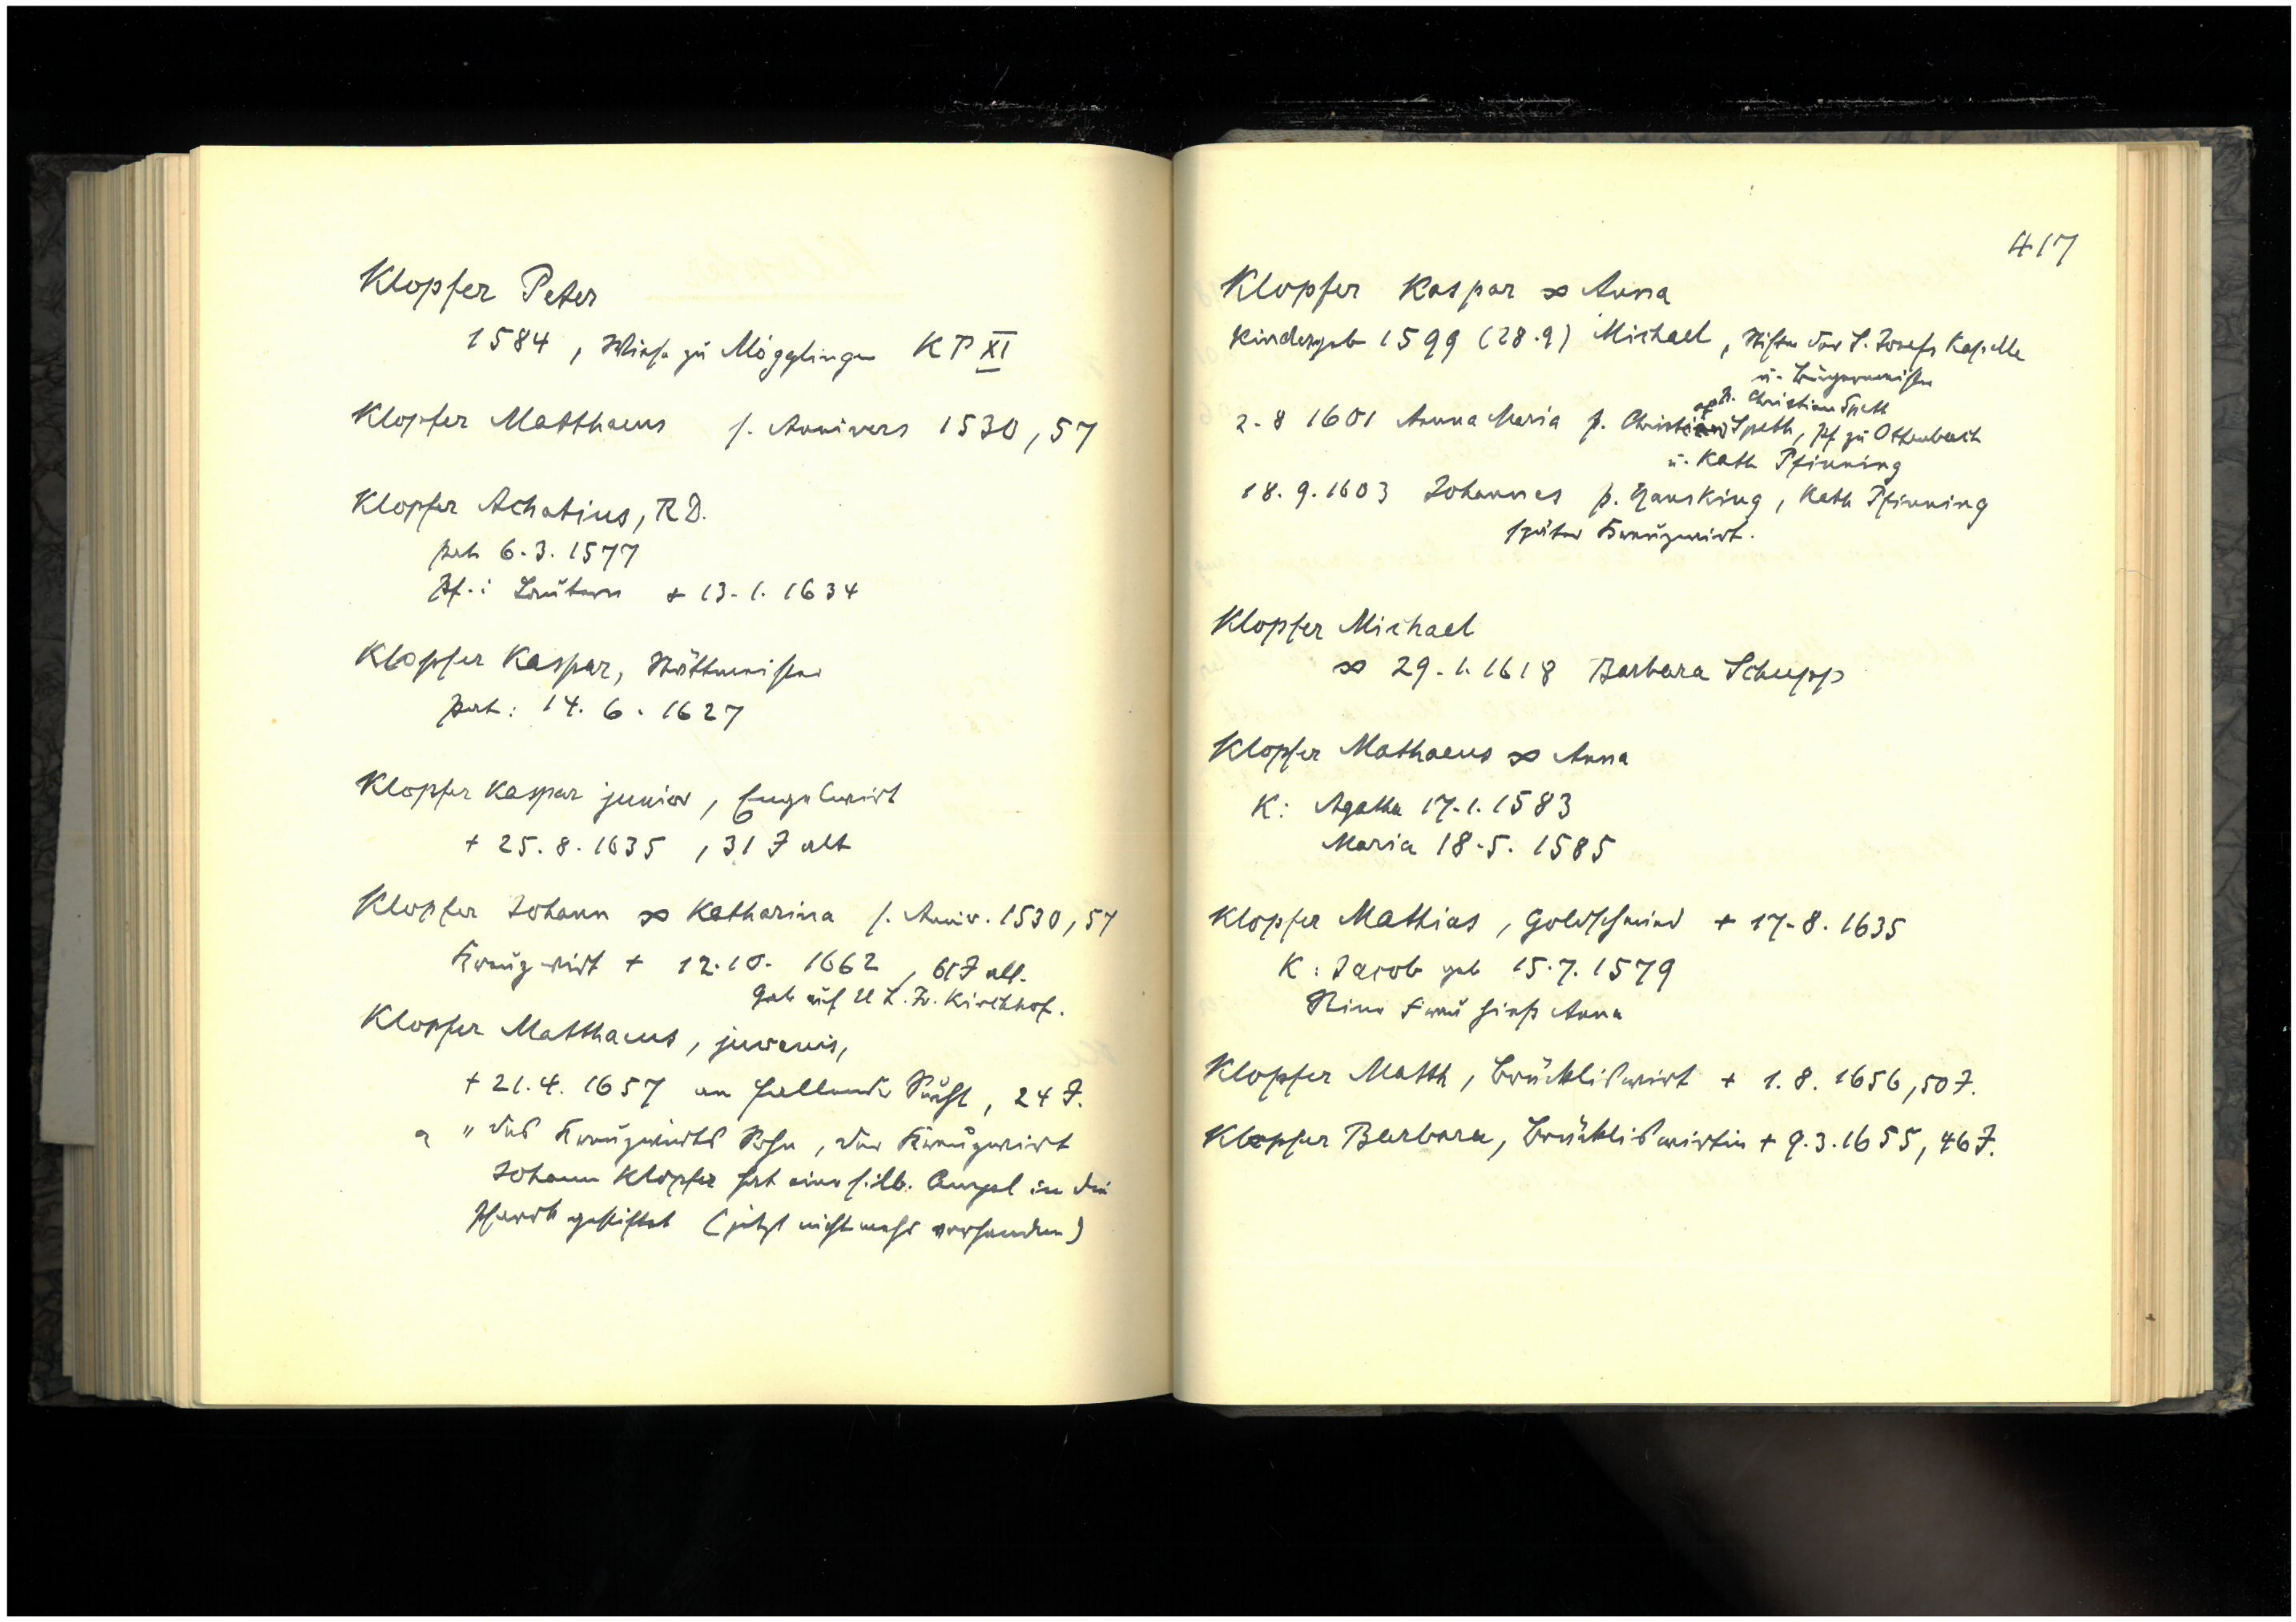 Klopfer Peter
1584, Wiese zu Mögglingen KP XI
Klopfer Matthaeus s. Annivers 1530, 57
Klopfer Achatius, RD.
pat 6.3.1577
Pf. i Lautern + 13.1.1634
Klopfer Kaspar, Stättmeister
pat: 14.6.1627
Klopfer Kaspar junior, Engelwirt
+ 25.8.1635, 31 J alt
Klopfer Johann ∞ Katharina s. Anniv. 1530, 57
Kreuzwirt + 12.10. 1662, 61 J alt.
Grab auf U L. Fr. Kirchhof.
Klopfer Matthaeus, juvenis,
+ 21.4. 1657 an fallender Sucht, 24 J.
" des Kreuzwirts Sohn, der Kreuzwirt
Johann Klopfer hat eine silb. Ampel in die
Pfarrk gestiftet (jetzt nicht mehr vorhanden)
417
Klopfer Kaspar ∞ Anna
Kinder geb 1599 (28.9) Michael, Stifter der S. Josefs Kapelle
u. Bürgermeister
Christian Speth
2.8 1601 Anna Maria p. Christian Speth, Pf zu Ottenbach
u. Kath Pfinning
18.9.1603 Johannes p. Hans King, Kath Pfinning
später Kreuzwirt.
Klopfer Michael
∞ 29.1.1618 Barbara Schupp
Klopfer Mathaeus ∞ Anna
K: Agatha 17.1.1583
Maria 18.5.1585
Klopfer Mathias, Goldschmied + 17.8.1635
K: Jacob geb 15.7.1579
Seine Frau hieß Anna
Klopfer Matth, Brückliswirt + 1.8.1656, 50 J.
Klopfer Barbara, Brückliswirtin + 9.3.1655, 46 J.